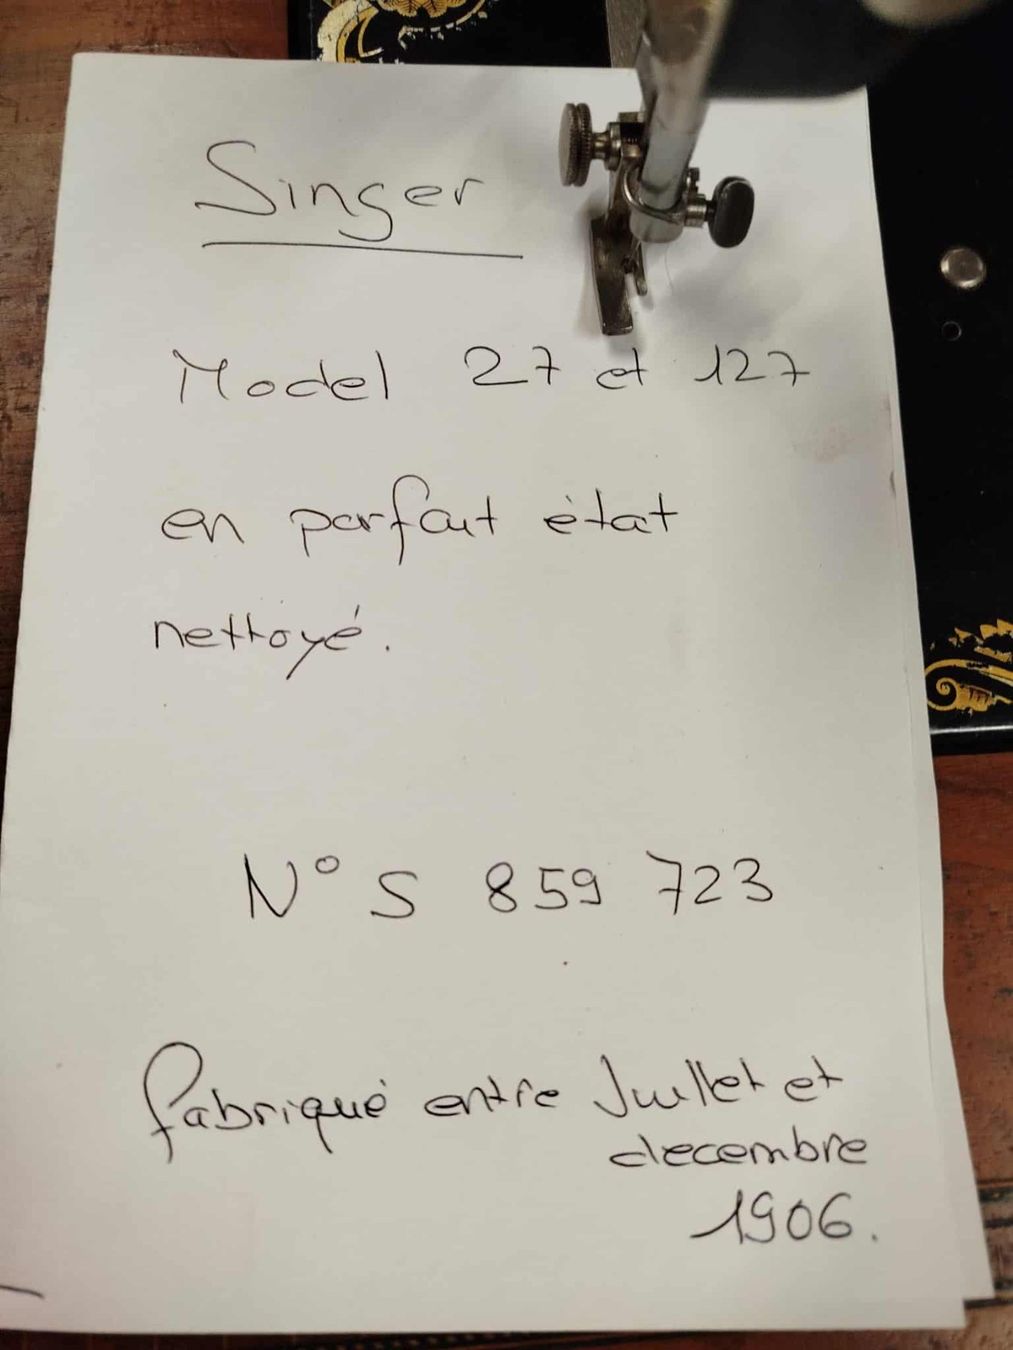 Singer
Model 27 et 127
en parfait ètat
nettoyé.
N° S 859 723
fabriqué entre Juillet et
decembre
1906.